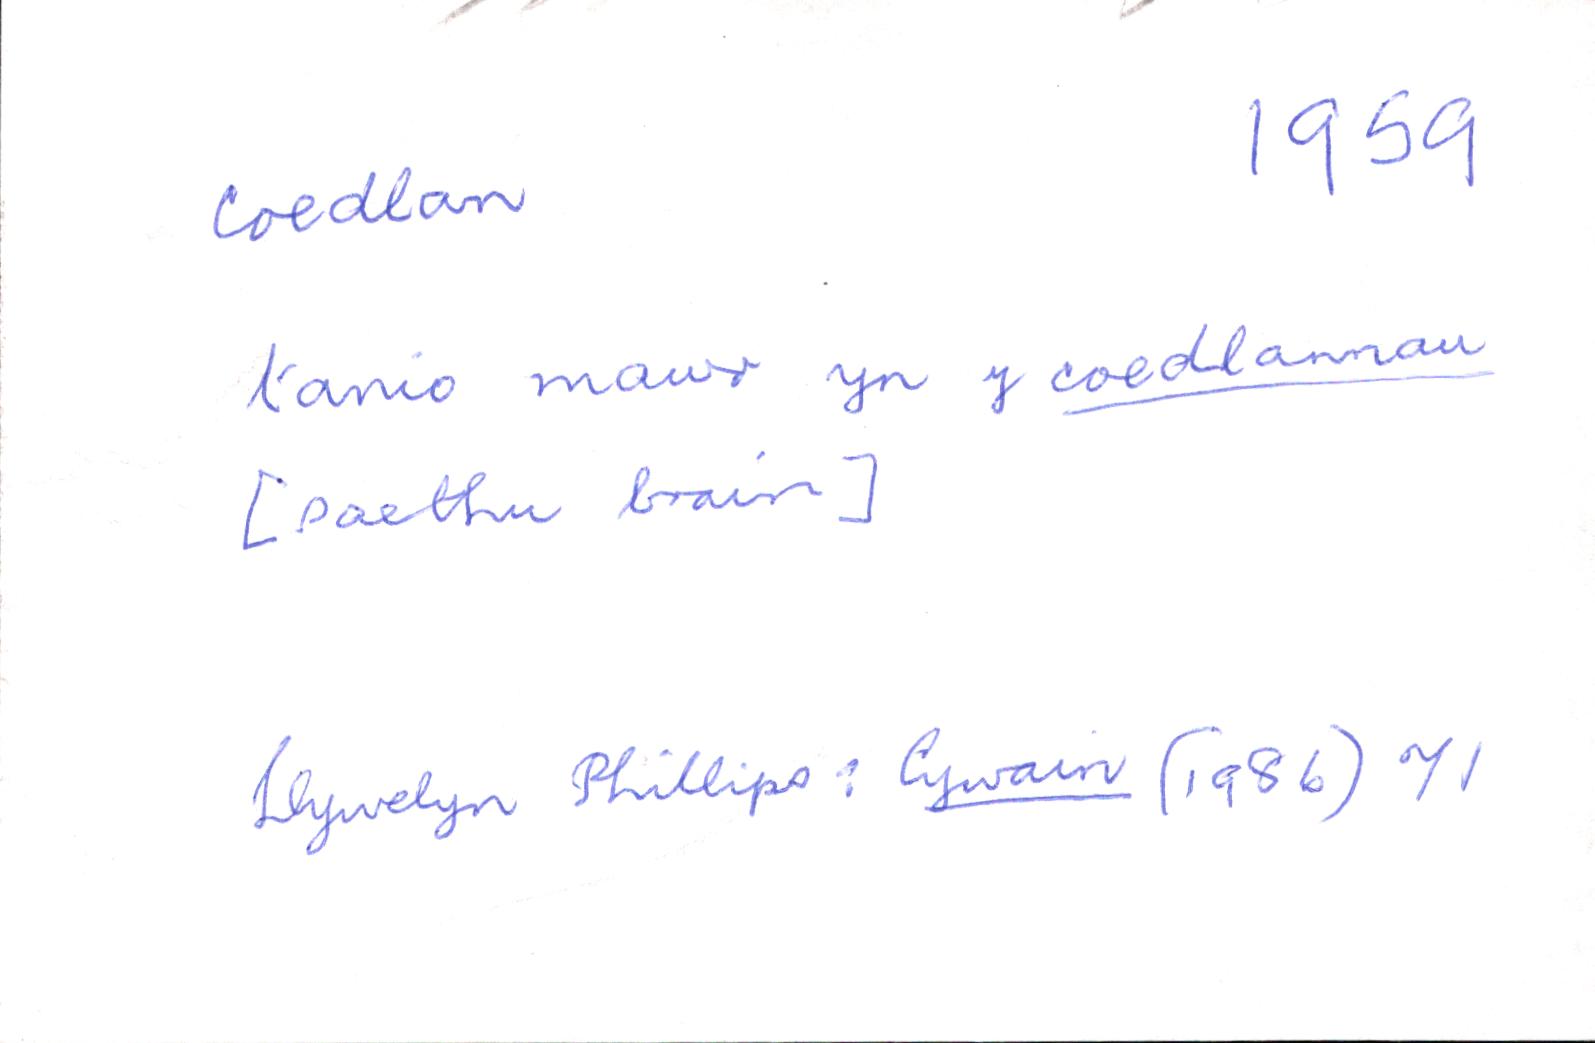 1959
coedlan
tanio mawr yn y coedlannau
[saethu brain]
Llywelyn Phillips: Cywain (1986) 71